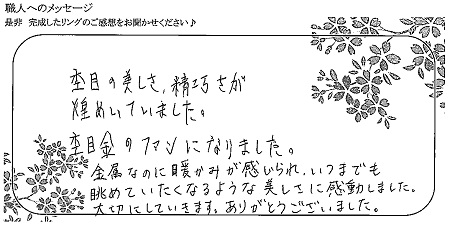 職人へのメッセージ
是非 完成したリングのご感想をお聞かせください♪
杢目の美しさ、精巧さが
煌めいていました。
杢目金のファンになりました。
金属なのに暖かみが感じられ、いつまでも
眺めていたくなるような美しさに感動しました。
大切にしていきます。ありがとうございました。